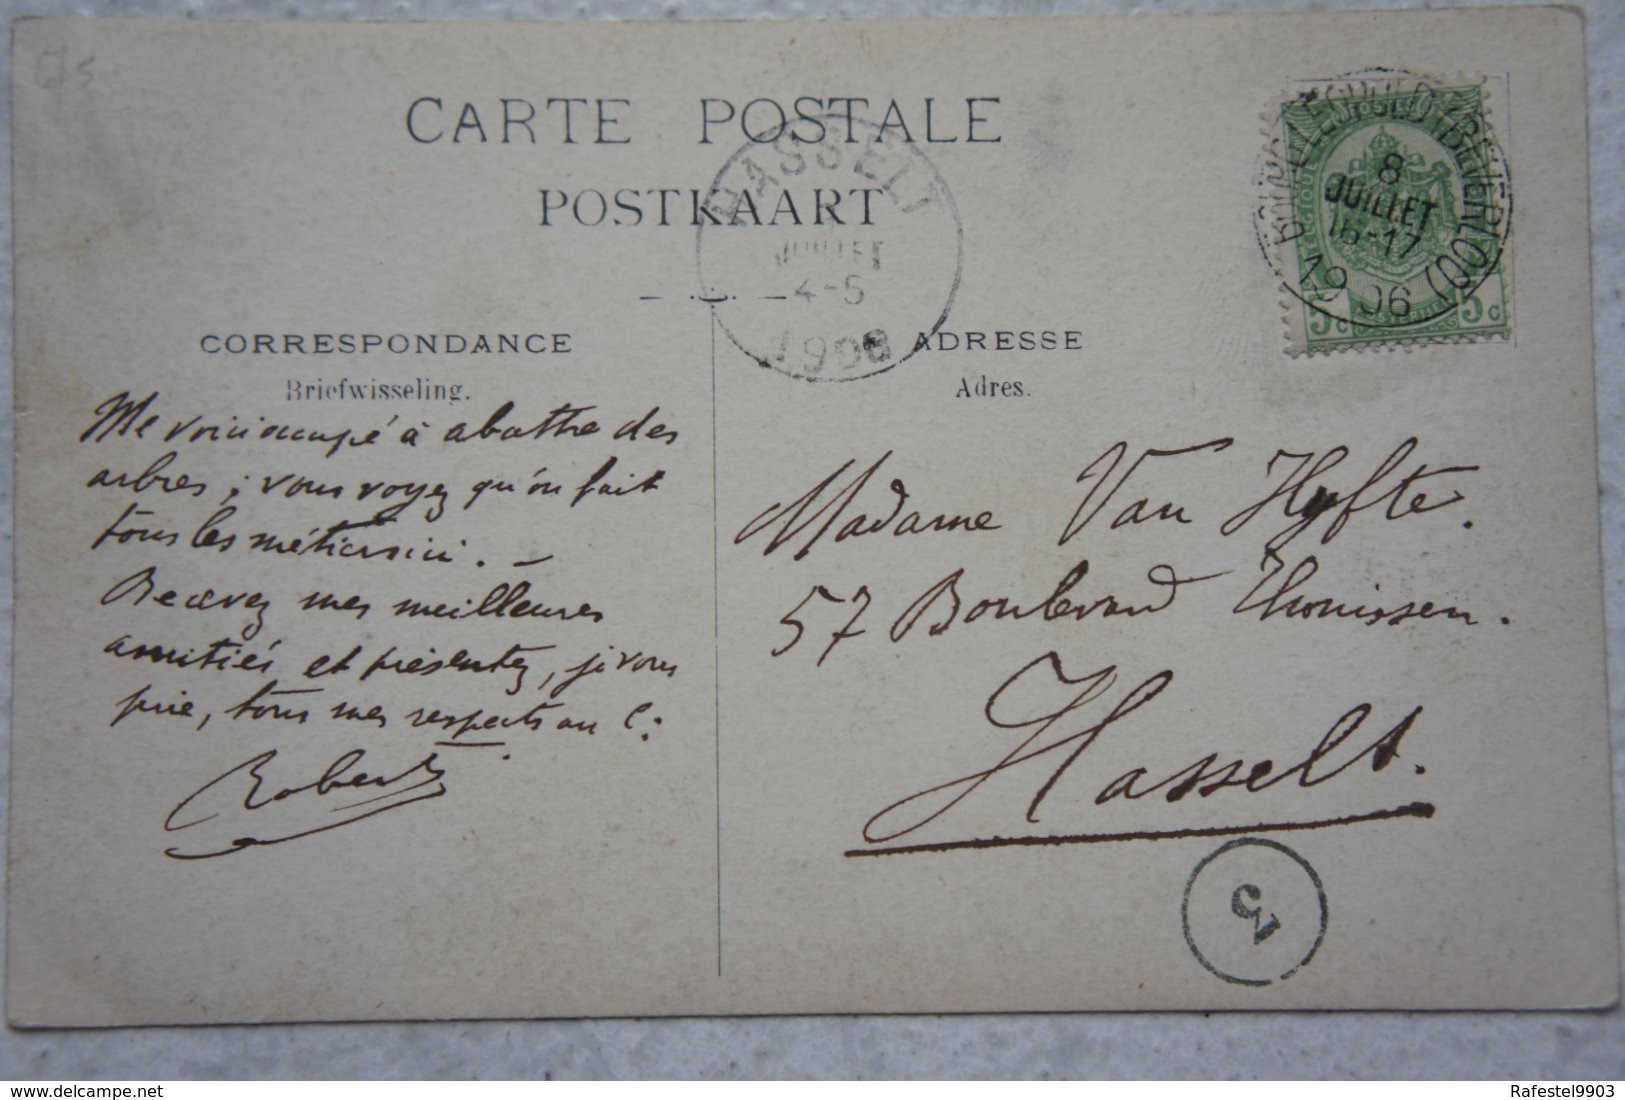 6/5
CARTE POSTALE
POSTKAART
HASSELT
JUILLET
4-5
1906
BOURG-LEOPOLD (BEVERLOO)
8
JUILLET
16-17
1906
5c 5c
CORRESPONDANCE
Briefwisseling.
Me voici occupé à abattre des
arbres; vous voyez qu'on fait
tous les métiers ici. —
Recevez mes meilleures
amitiés et présentez, je vous
prie, tous mes respects au C:
Robert
ADRESSE
Adres.
Madame Van Hyfte.
57 Boulevard Thonissen.
Hasselt.
5
delcampe.net
Rafestel9903